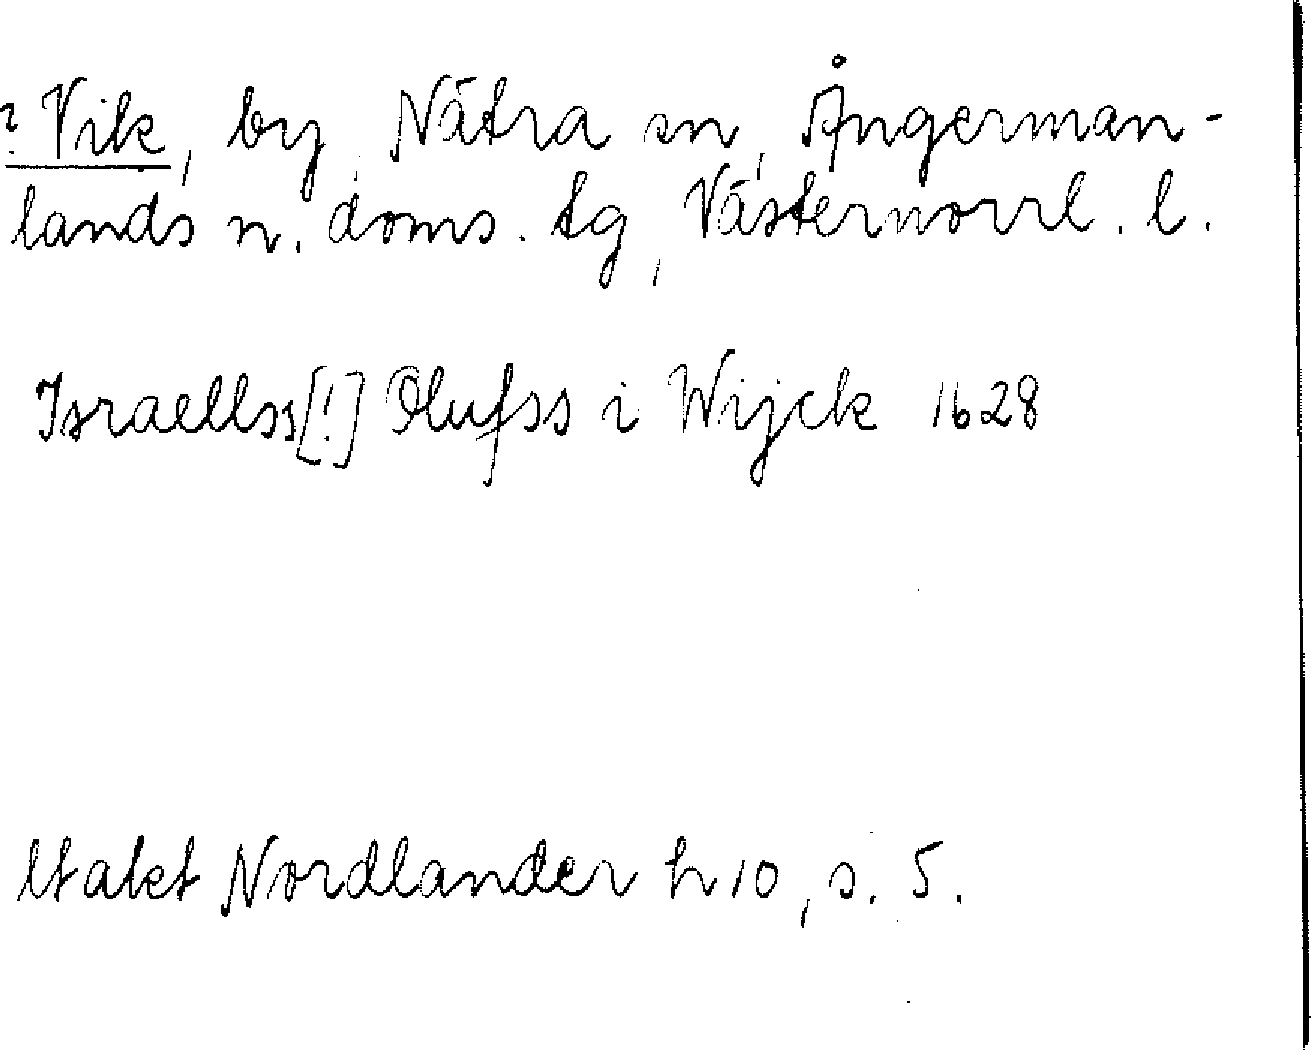 ? Vik, by, Nätra sn, Ångerman-
lands n. doms. tg, Västernorrl. l.
Israellss[!] Olufss i Wijck 1628
Nordlander h 10, s. 5.